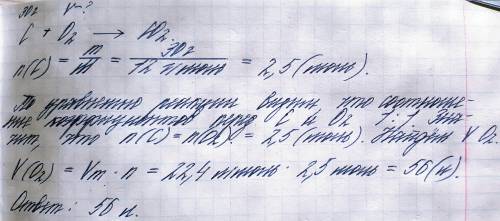 30г V-?
C + O₂ → CO₂.
n(C) = m/M = 30г/12 г/моль = 2,5 (моль).
По уравнению реакции видим, что соотноше-
ние коэффициентов перед C и O₂ 1:1. Зна-
чит, что n(C) = n(O₂) = 2,5 (моль). Найдём V O₂.
V(O₂) = Vm · n = 22,4 л/моль · 2,5 моль = 56 (л).
Ответ: 56 л.